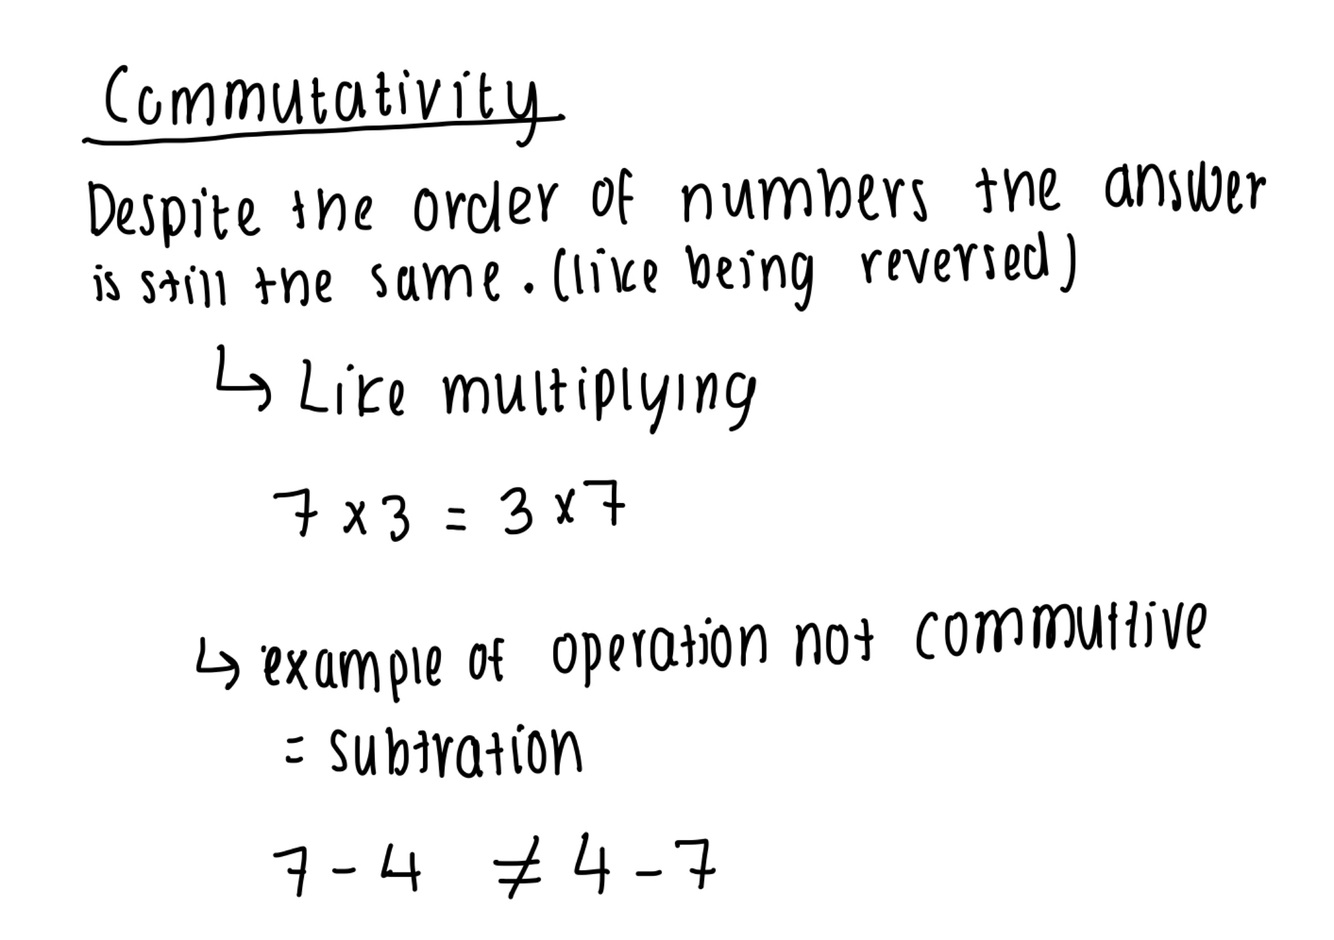 Commutativity
Despite the order of numbers the answer
is still the same. (like being reversed)
↳ Like multiplying
7 × 3 = 3 × 7
↳ example of operation not commuttive
= subtration
7 - 4 ≠ 4 - 7